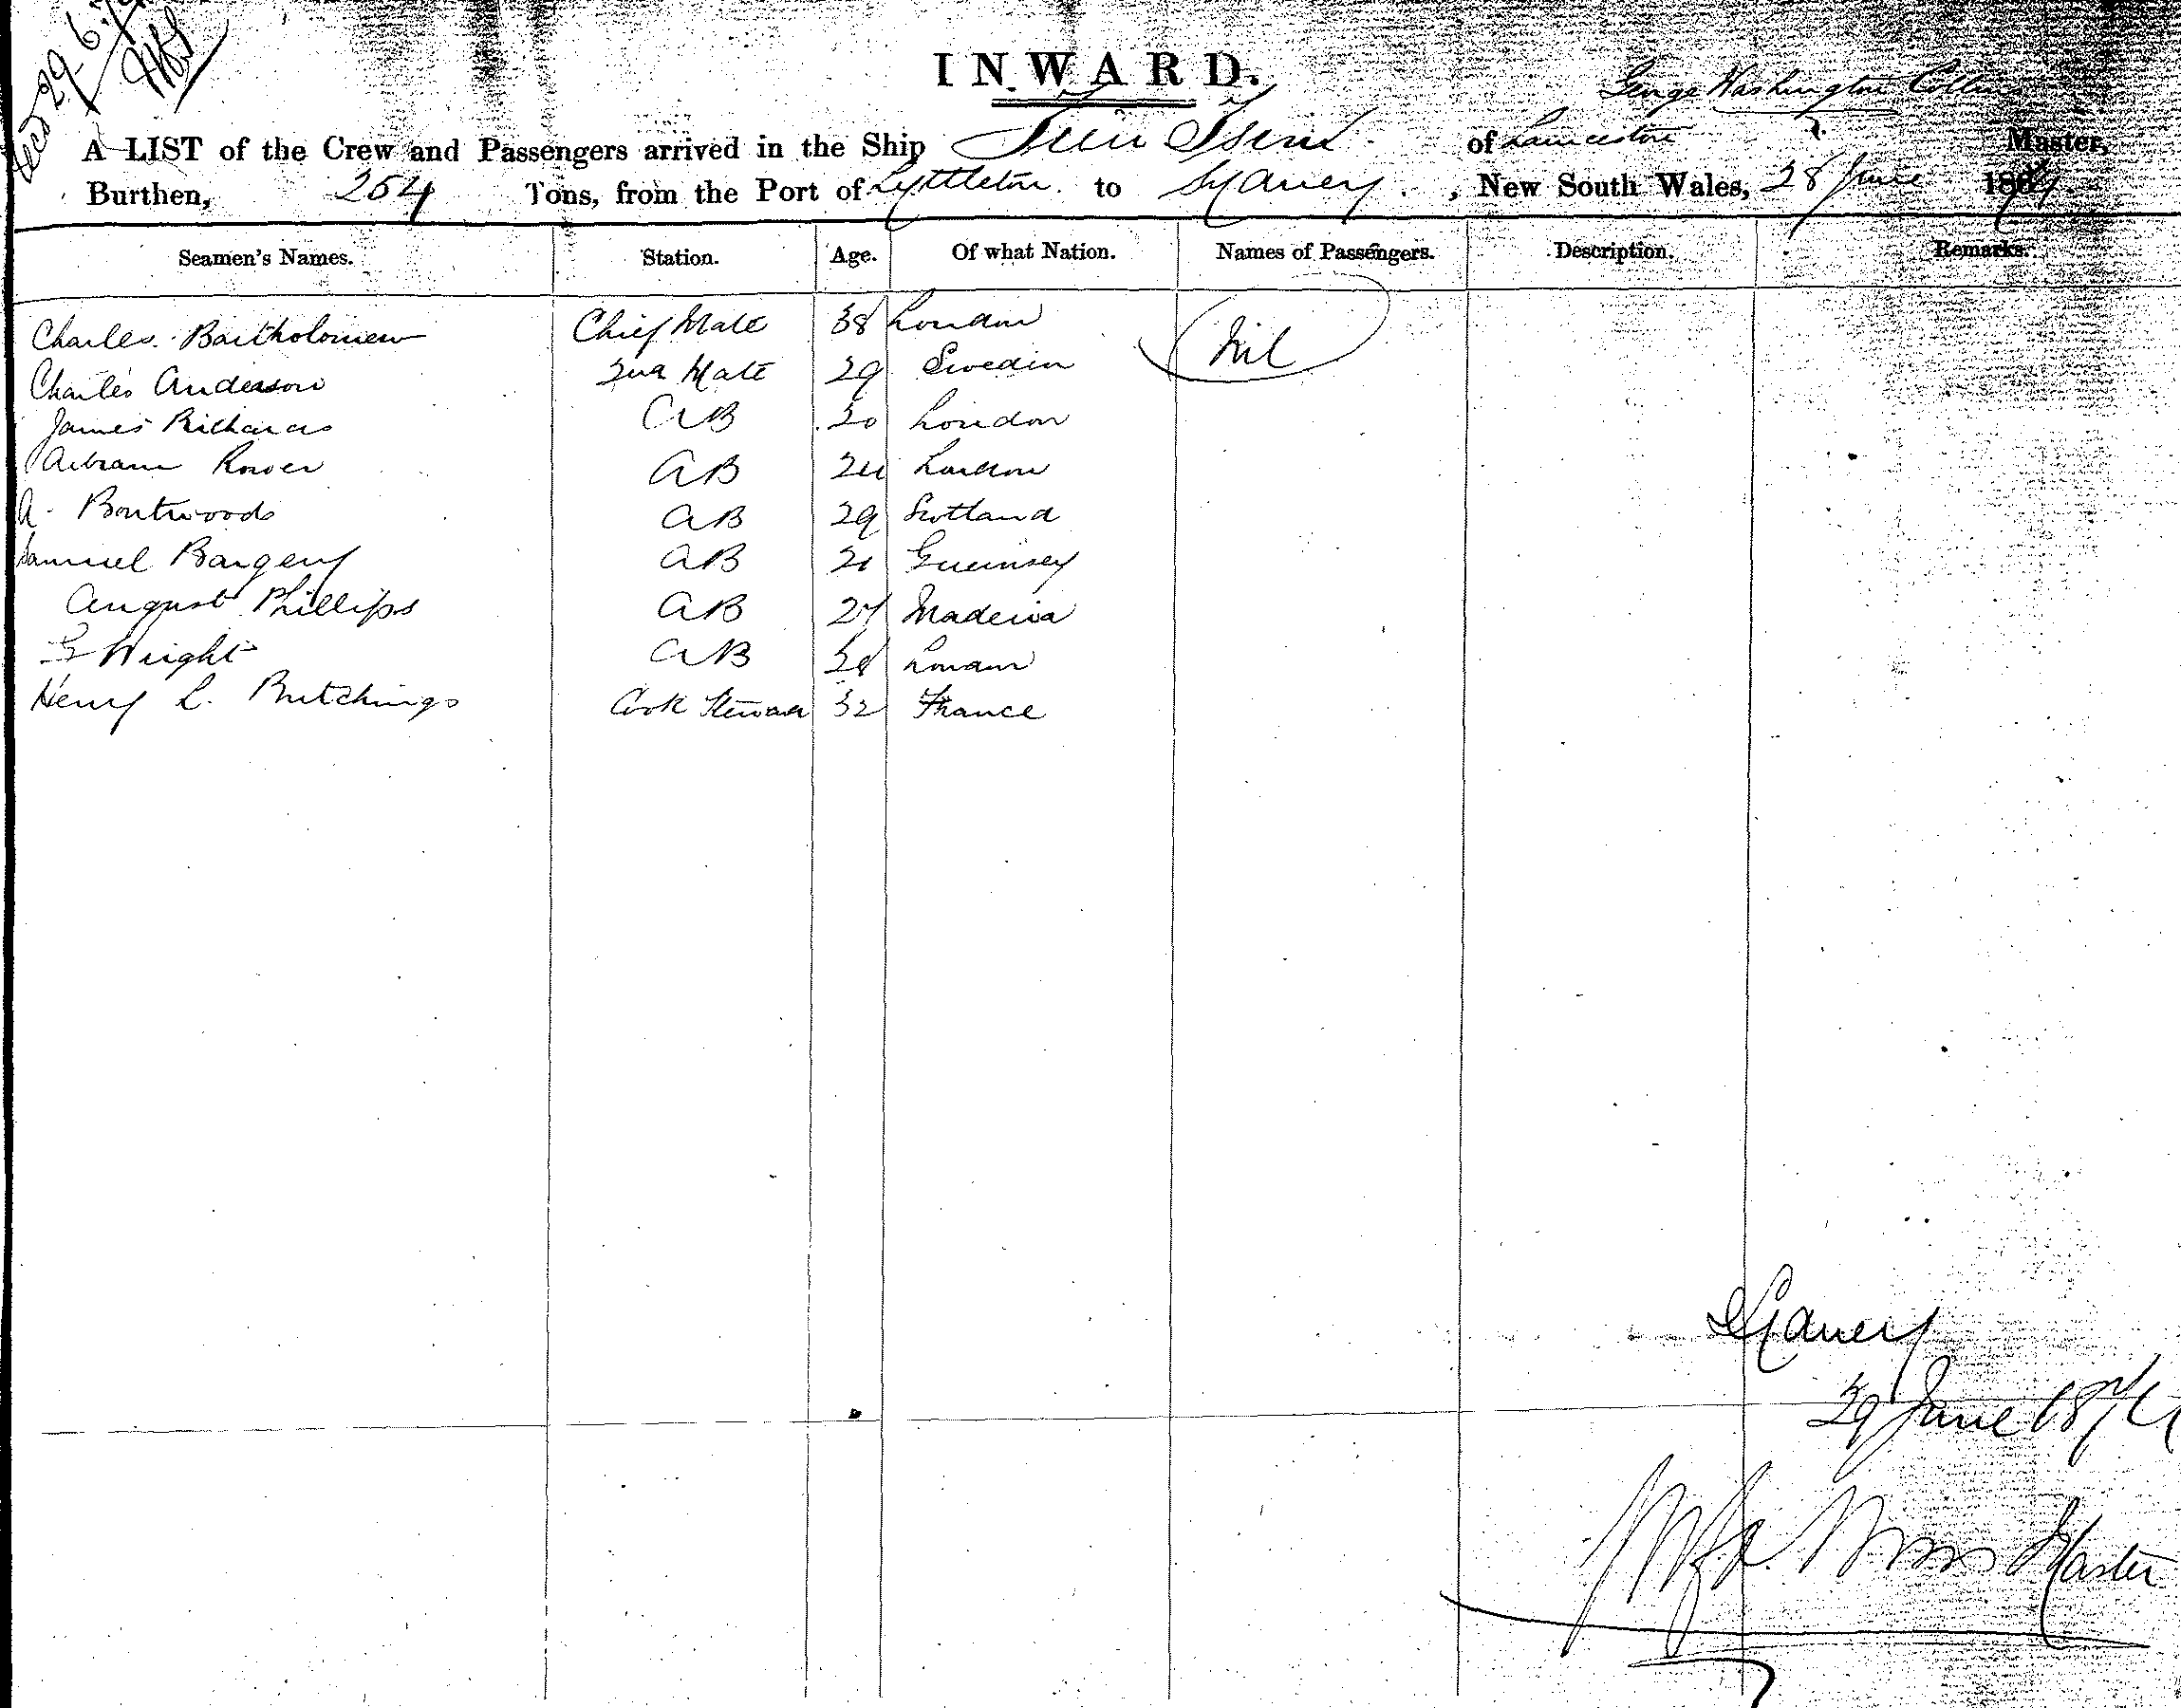 29 6
INWARD.
George Washington Collins
A LIST of the Crew and Passengers arrived in the Ship Tien Tsin of Launceston Master,
Burthen, 254 Tons, from the Port of Lyttleton to Sydney, New South Wales, 28 June 187
Seamen's Names. Station. Age. Of what Nation. Names of Passengers. Description. Remarks.
Charles Bartholomew Chief Mate 38 London Nil
Charles Anderson 2nd Mate 29 Sweden
James Richards AB 20 London
Rower AB 24
A. Bontwoods AB 29 Scotland
Samuel Bargery AB 21 Guernsey
August Phillips AB 27 Madeira
G Wright AB 38 London
Henry L. Butchings Cook Steward 32 France
Sydney
29 June 187
Master